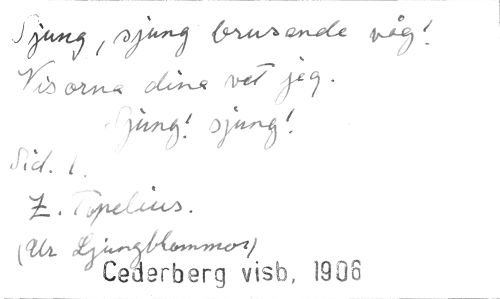 Sjung, sjung brusande våg!
Visorna dina vet jag.
Sjung! sjung!
Sid. 1.
Z. Topelius.
(Ur Ljungblommor)
Cederberg visb, 1906